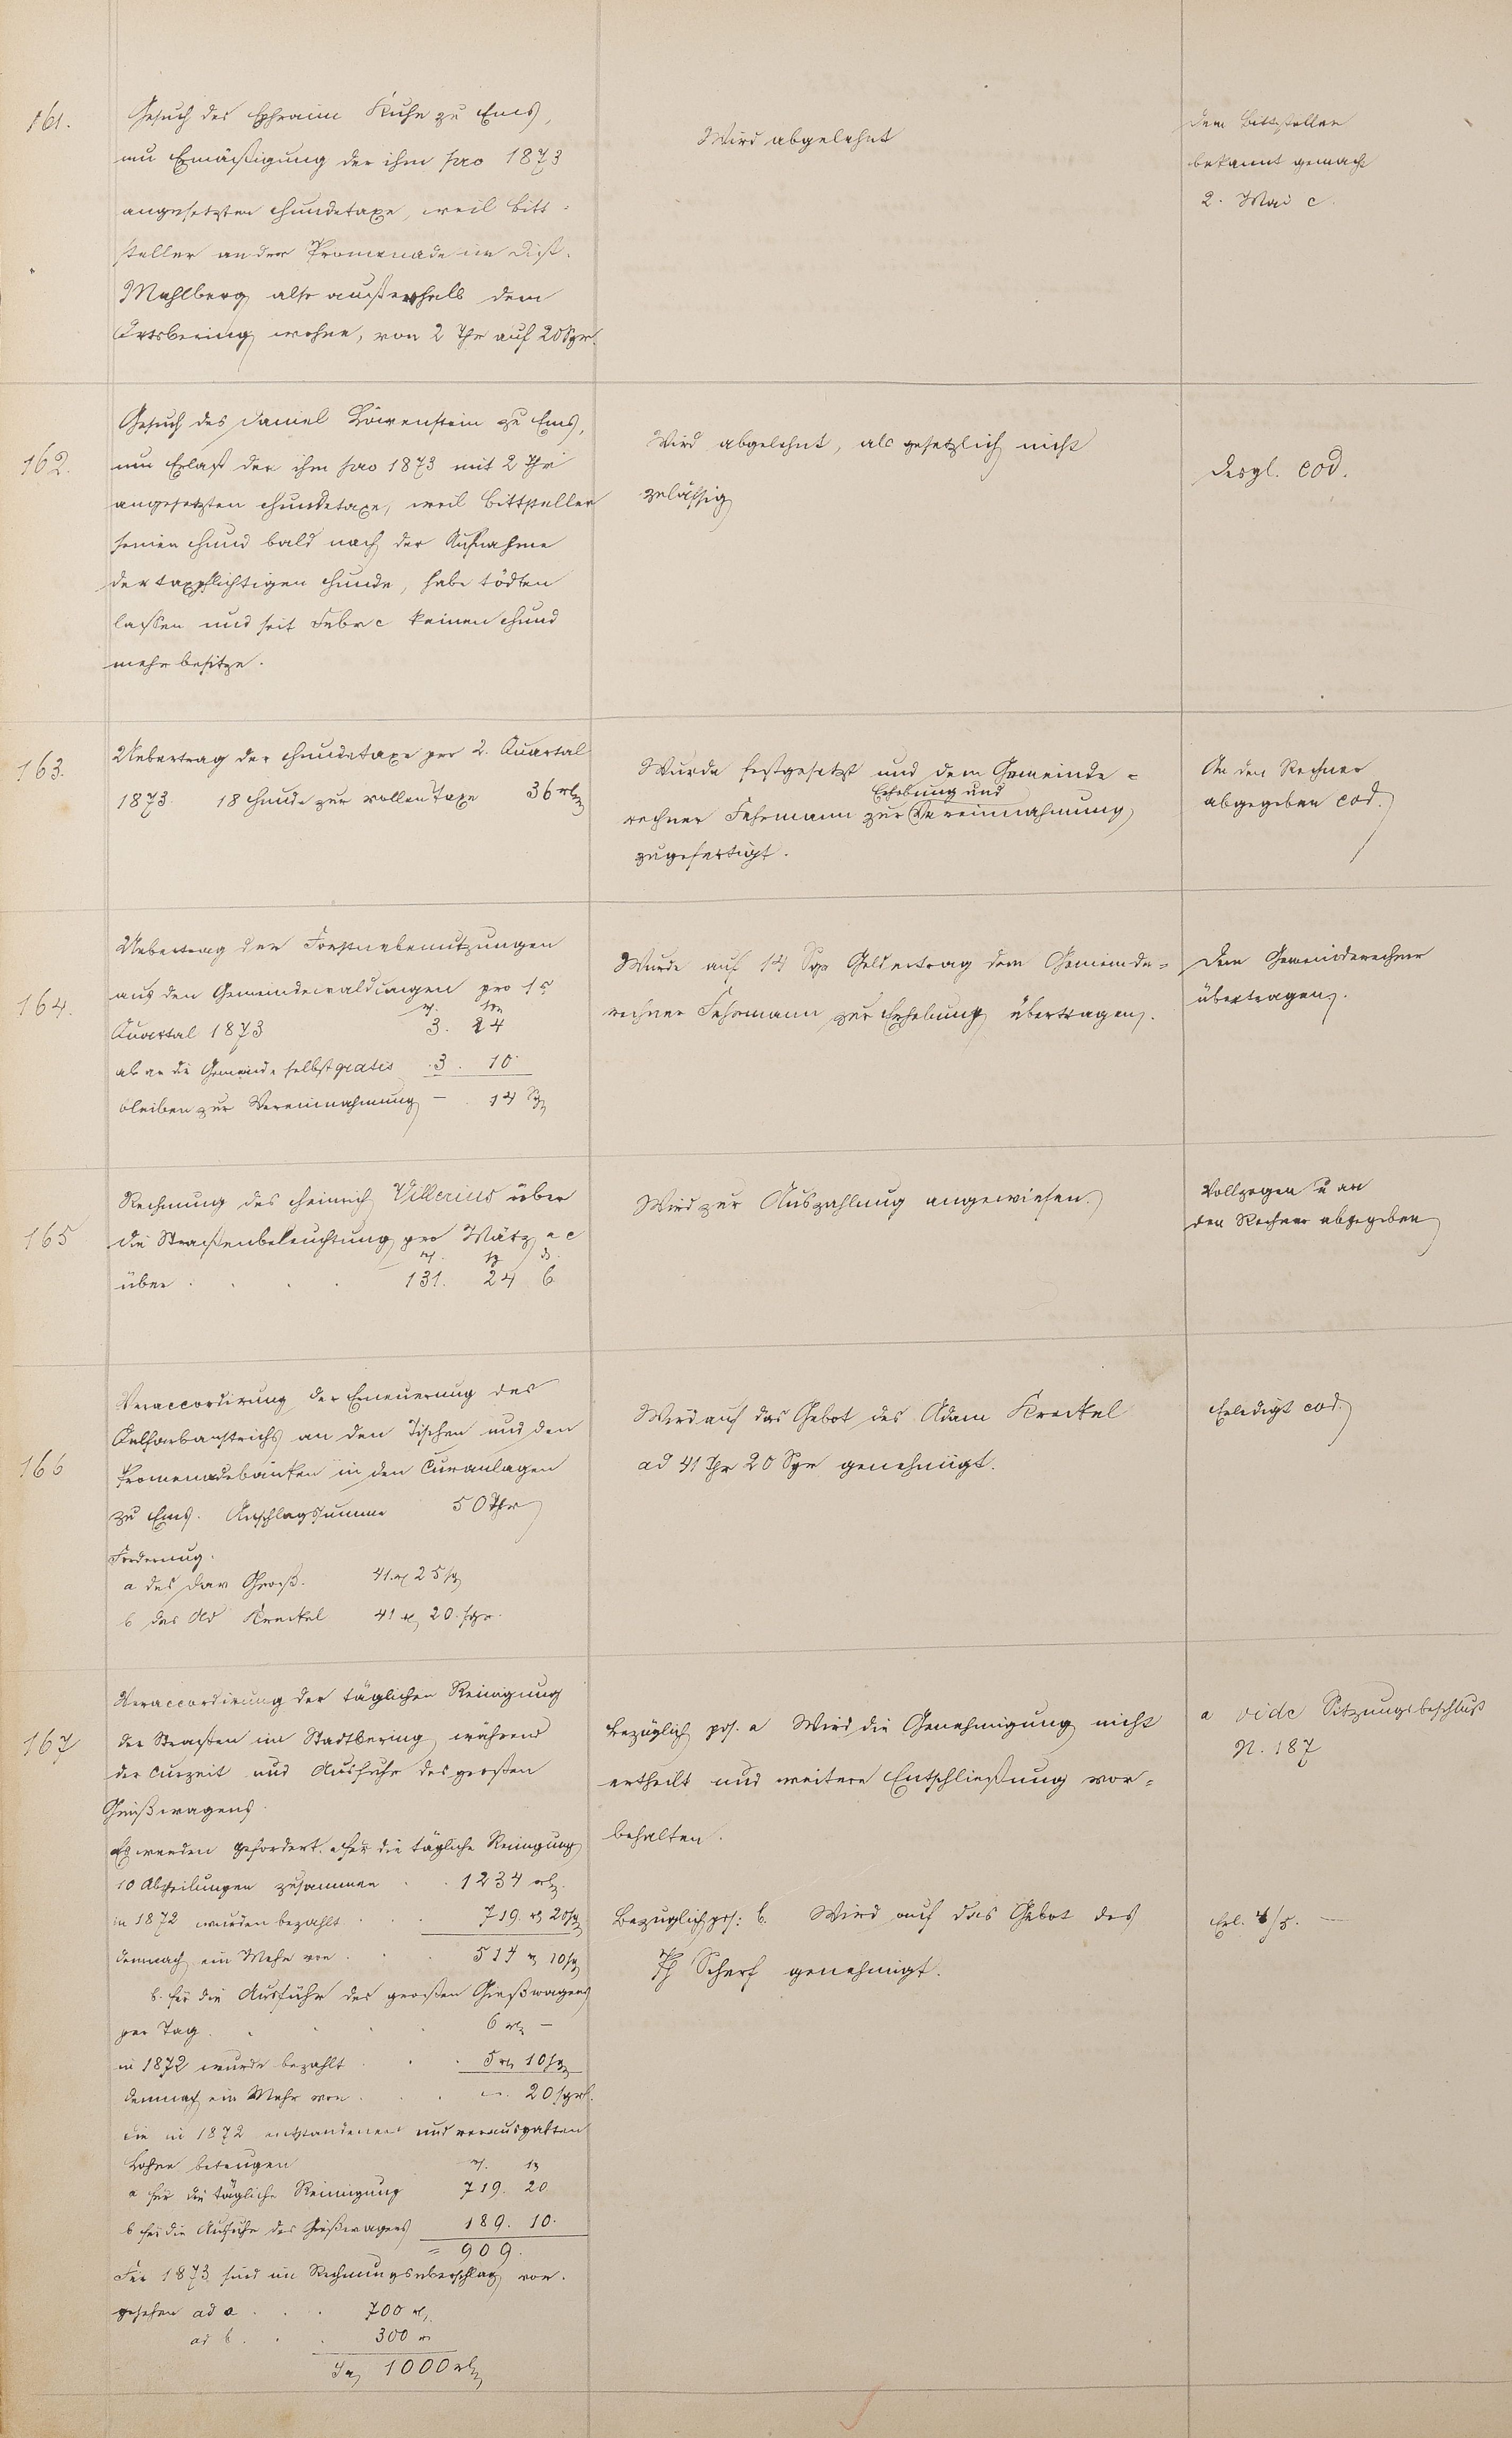 161.
Gesuch des Ephraim Kuhn zu Ems,
um Ermäßigung der ihm pro 1873
angesetzten Hundetaxe, weil Bitt=
steller an der Promenade im Dist.
Mahlberg also außerhalb dem
Ortsbering wohne, von 2 Thr auf 20 Sgr.
Wird abgelehnt
dem Bittsteller
bekannt gemacht
2. Mai c.
162.
Gesuch des Daniel Löwenstein zu Ems,
um Erlaß der ihm pro 1873 mit 2 Thr
angesetzten Hundetaxe, weil Bittsteller
seinen Hund bald nach der Aufnahme
der taxpflichtigen Hunde, habe tödten
lassen und seit Febr c keinen Hund
mehr besitze.
Wird abgelehnt, als gesetzlich nicht
zulässig
desgl. eod.
163.
Uebertrag der Hundetaxe per 2. Quartal
1873. 18 Hunde zur vollen Taxe 36 rl
Wurde festgesetzt und dem Gemeinde=
Erhebung und
rechner Fehrmann zur Vereinnahmung
zugefertigt.
An den Rechner
abgegeben eod.
164.
Uebertrag der Forstnebennutzungen
aus den Gemeindewaldungen pro 1s
Quartal 1873 3. 24
ab an die Gemeinde selbst gratis 3. 10
bleiben zur Vereinnahmung — . 14 Sg
Wurde auf 14 Sgr Geldertrag dem Gemeinde=
rechner Fehrmann zur Erhebung übertragen.
Dem Gemeinderechner
übertragen.
165
Rechnung des Heinrich Villerius über
die Straßenbeleuchtung pro März a c
über . . . 131. 24 6
Wird zur Auszahlung angewiesen.
Vollzogen u an
den Rechner abgegeben
166
Veraccordirung der Erneuerung des
Oelfarbanstrichs an den Tischen und den
Promenadebänken in den Curanlagen
zu Ems. Anschlagssumme 50 Thr
Forderung.
a des Dav Groß. 41 rl 25 sg
b des Ad Kreckel 41 rl 20 sgr.
Wird auf das Gebot des Adam Kreckel
ad 41 Thr 20 Sgr genehmigt.
Erledigt eod.
167
Veraccordirung der täglichen Reinigung
der Straßen im Stadtbering während
der Curzeit und Ausfuhr des großen
Gießwagens.
Es werden gefordert. a für die tägliche Reinigung
10 Abtheilungen zusammen . . 1234 rl.
in 1872 wurden bezahlt . . . 719. rl 20 sg
demnach ein Mehr von . . . 514 rl 10 sg
b. für die Ausfuhr des großen Gießwagens
per Tag . . . . 6 rl —
in 1872 wurde bezahlt . . . 5 rl 10 sg
demnach ein Mehr von . . . — . 20 sgr.
die in 1872 entstandenen und verausgabten
Löhne betrugen
a für die tägliche Reinigung 719. 20
b für die Ausfuhr des Gießwagens 189. 10.
= 909.
Für 1873 sind im Rechnungsüberschlag vor.
gesehen ad a . . . 700 rl,
ad b . . . 300 rl
Sa 1000 rl
Bezüglich pos. a Wird die Genehmigung nicht
ertheilt und weitere Entschließung vor=
behalten.
Bezüglich pos: b. Wird auf das Gebot des
Ph Scherf genehmigt.
a vide Sitzungsbeschluß
N. 187
Erl. 4/5. —